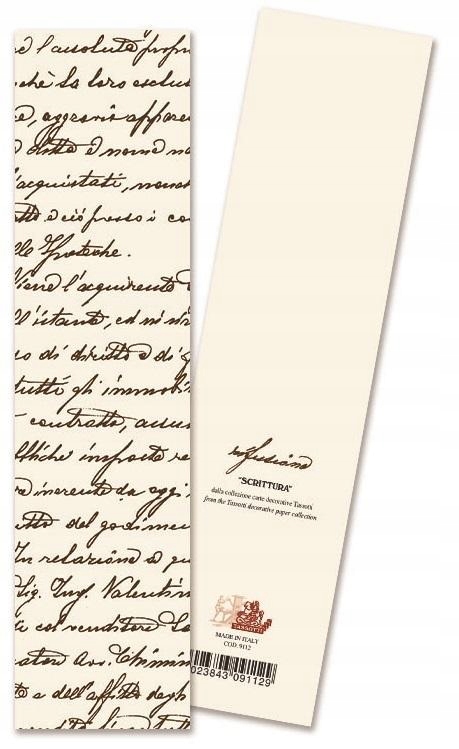 e l'assoluta propri
chè la loro esclus
e, aggravio appare
ditta e nome no
'acquistati, nonch
e ciò presso i co
lle Ipoteche.
Viene l'acquirente
l'istante, ed
so di diritto e di g
tutti gli immobil
contratto, assun
imposte re
inerente da oggi
del godimen
In relazione a qu
Sig. Ing. Valentin
col venditore
Avv.
e dell'affitto degli
"SCRITTURA"
dalla collezione carte decorative Tassotti
from the Tassotti decorative paper collection
TASSOTTI
MADE IN ITALY
COD. 9112
023843 091129